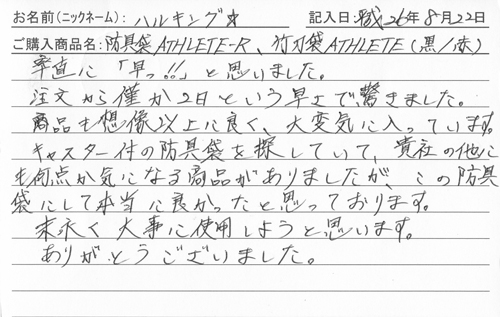 お名前(ニックネーム): ハルキング☆ 記入日: 平成26年8月22日
ご購入商品名: 防具袋ATHLETE-R、竹刀袋ATHLETE(黒/赤)
率直に「早っ!!」と思いました。
注文から僅か2日という早さで驚きました。
商品も想像以上に良く、大変気に入っています。
キャスター付の防具袋を探していて、貴社の他に
も何点か気になる商品がありましたが、この防具
袋にして本当に良かったと思っております。
末永く大事に使用しようと思います。
ありがとうございました。